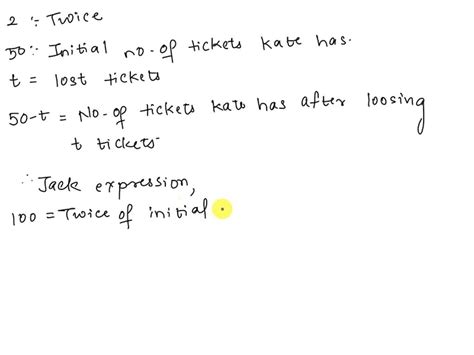 2 :- Twice
50:- Initial no-of tickets kate has.
t = lost tickets
50-t = No-of tickets kate has after loosing
t tickets-
∴ Jack expression,
100 = Twice of initial